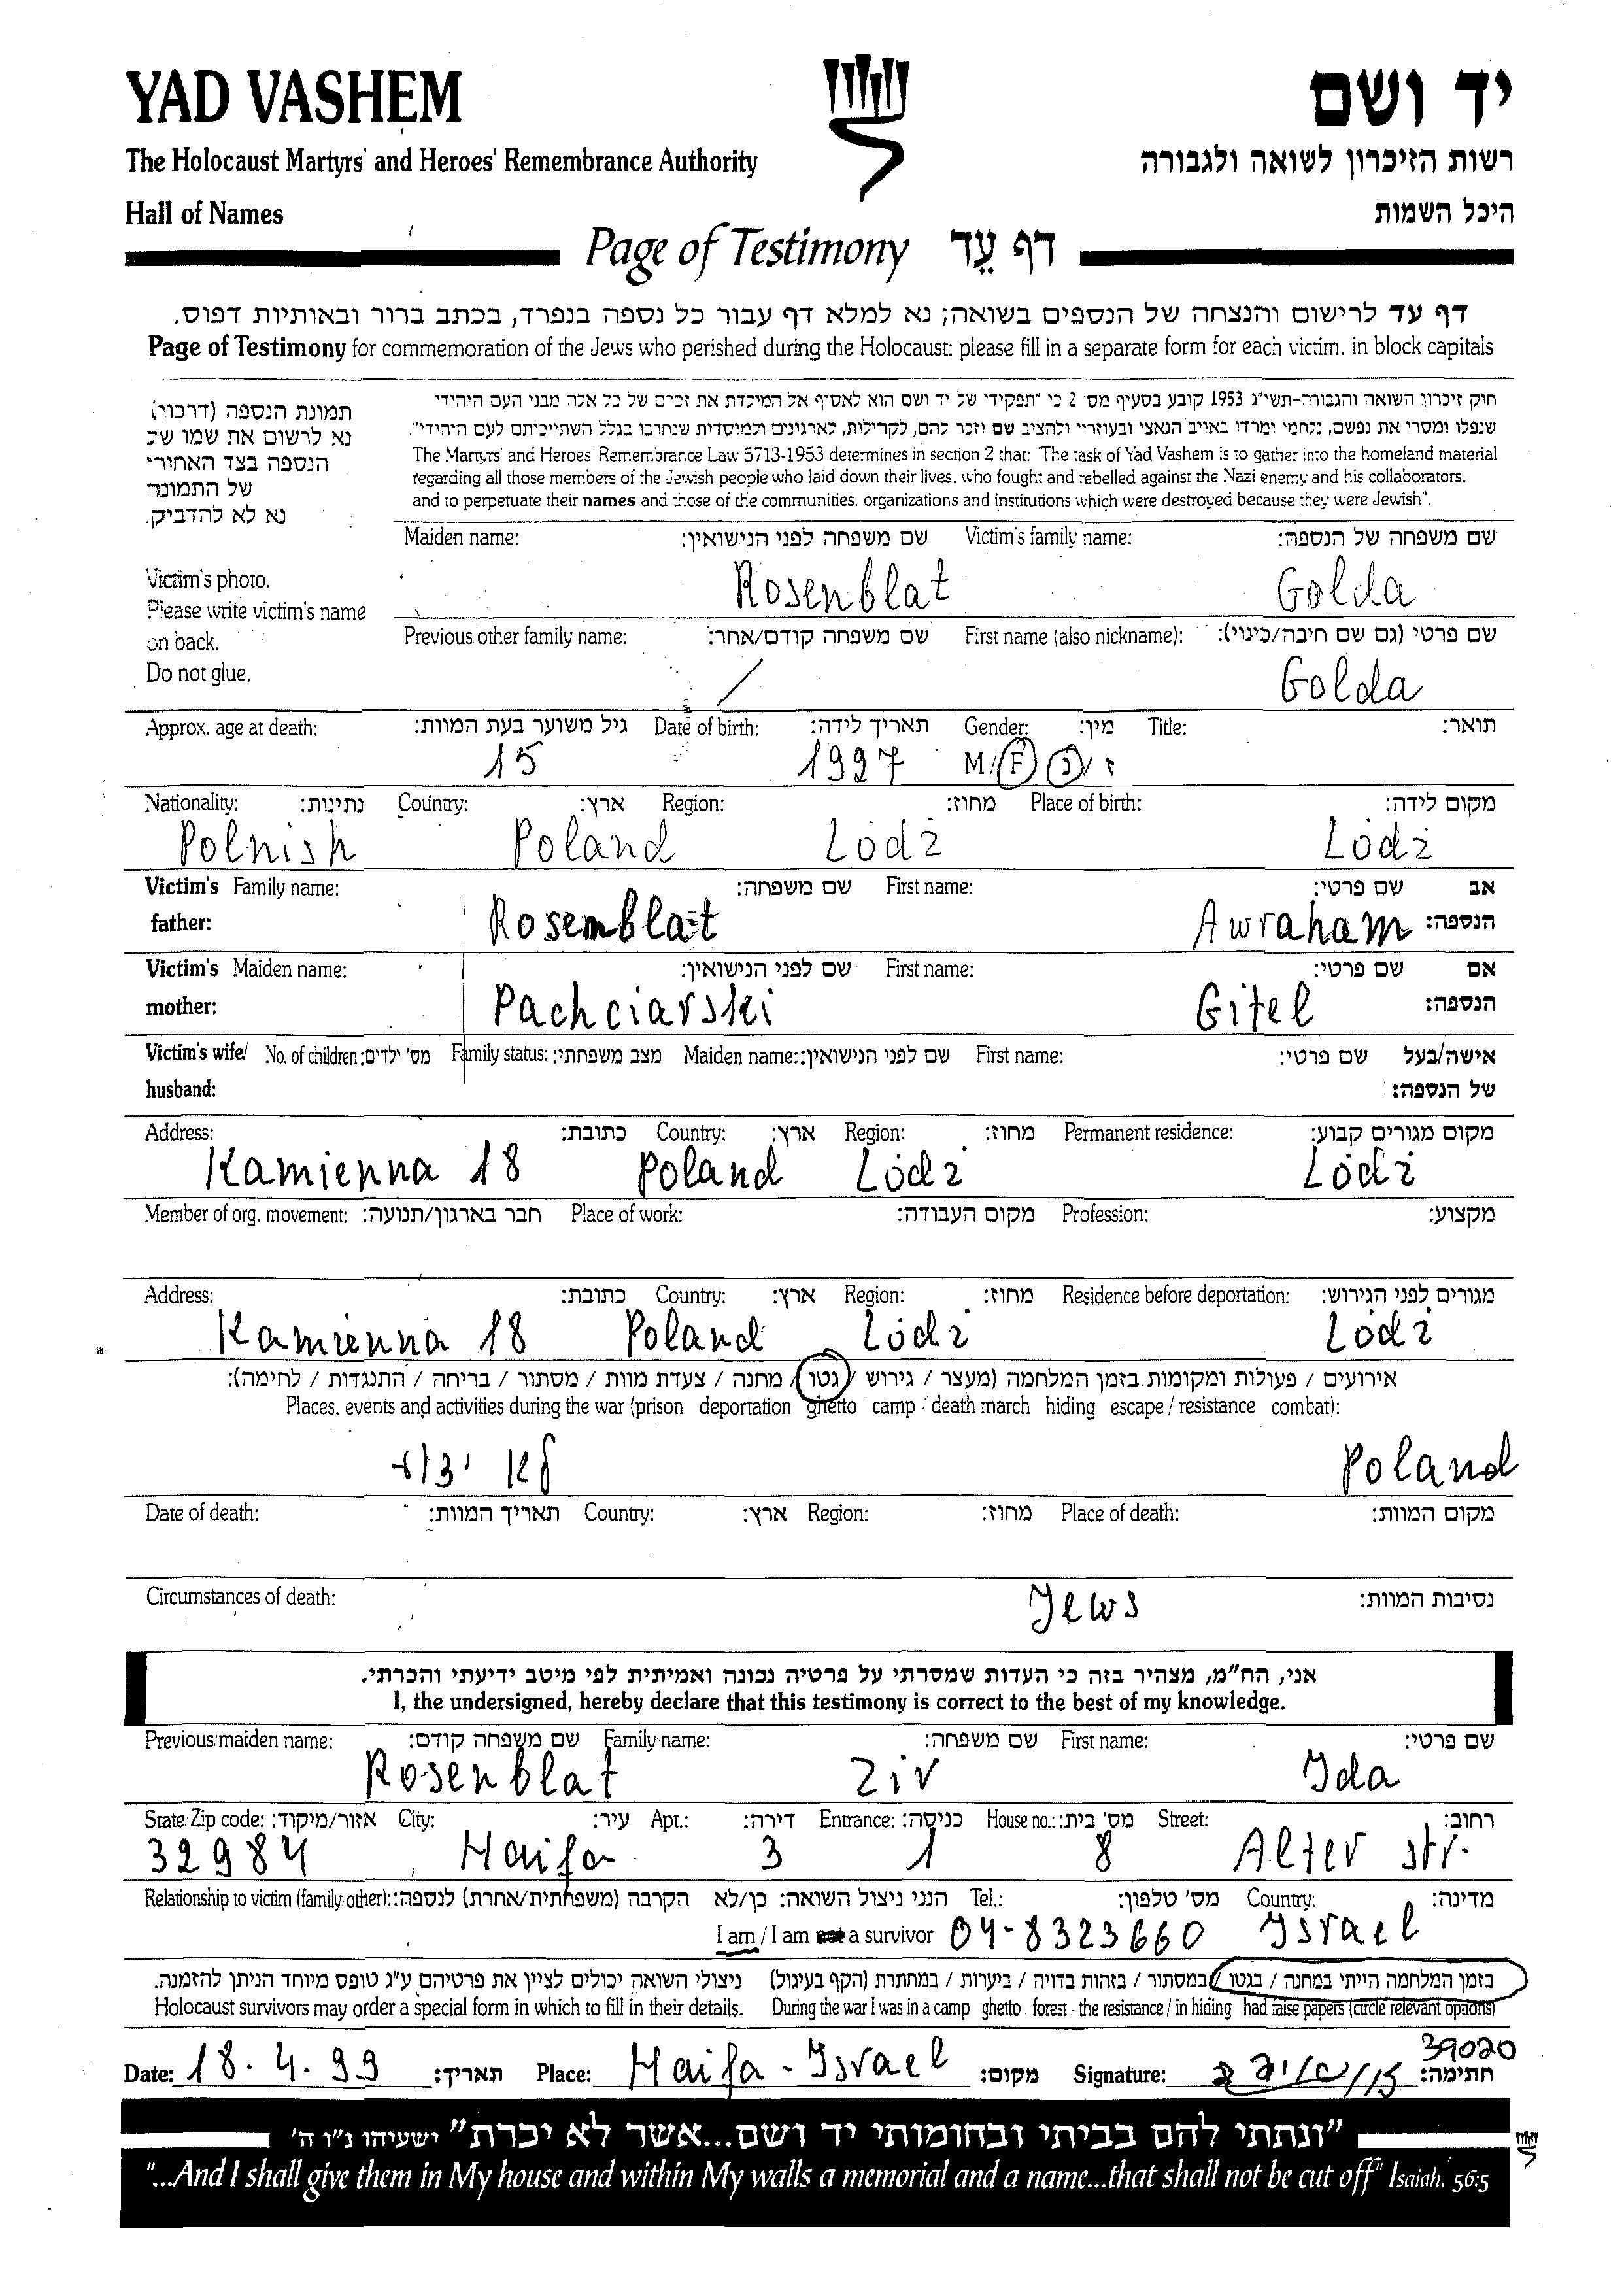 YAD VASHEM
יד ושם
The Holocaust Martyrs' and Heroes' Remembrance Authority
רשות הזיכרון לשואה ולגבורה
Hall of Names
היכל השמות
Page of Testimony דף עֵד
דף עד לרישום והנצחה של הנספים בשואה; נא למלא דף עבור כל נספה בנפרד, בכתב ברור ובאותיות דפוס.
Page of Testimony for commemoration of the Jews who perished during the Holocaust: please fill in a separate form for each victim. in block capitals
תמונת הנספה (דרכון)
נא לרשום את שמו של
הנספה בצד האחורי
של התמונה
נא לא להדביק.
Victim's photo.
Please write victim's name
on back.
Do not glue.
חוק זיכרון השואה והגבורה-תשי"ג 1953 קובע בסעיף מס' 2 כי "תפקידו של יד ושם הוא לאסוף אל המולדת את זכרם של כל אלה מבני העם היהודי
שנפלו ומסרו את נפשם, נלחמו ומרדו באויב הנאצי ובעוזריו ולהציב שם וזכר להם, לקהילות, לארגונים ולמוסדות שנחרבו בגלל השתייכותם לעם היהודי".
The Martyrs' and Heroes' Remembrance Law 5713-1953 determines in section 2 that: "The task of Yad Vashem is to gather into the homeland material
regarding all those members of the Jewish people who laid down their lives. who fought and rebelled against the Nazi enemy and his collaborators.
and to perpetuate their names and those of the communities. organizations and institutions which were destroyed because they were Jewish".
Maiden name: שם משפחה לפני הנישואין: Victim's family name: שם משפחה של הנספה:
Rosenblat Golda
Previous other family name: שם משפחה קודם/אחר: First name (also nickname): שם פרטי (גם שם חיבה/כינוי):
/ Golda
Approx. age at death: גיל משוער בעת המוות: Date of birth: תאריך לידה: Gender: מין: Title: תואר:
15 1927 M/F ז/נ
Nationality: נתינות: Country: ארץ: Region: מחוז: Place of birth: מקום לידה:
Polnish Poland Lódż Lódż
Victim's Family name: שם משפחה: First name: שם פרטי: אב
father: Rosemblat Awraham הנספה:
Victim's Maiden name: שם לפני הנישואין: First name: שם פרטי: אם
mother: Pachciarski Gitel הנספה:
Victim's wife/ No. of children: מס' ילדים: Family status: מצב משפחתי: Maiden name: שם לפני הנישואין: First name: שם פרטי: אישה/בעל
husband: של הנספה:
Address: כתובת: Country: ארץ: Region: מחוז: Permanent residence: מקום מגורים קבוע:
Kamienna 18 Poland Lódż Lódż
Member of org. movement: חבר בארגון/תנועה: Place of work: מקום העבודה: Profession: מקצוע:
Address: כתובת: Country: ארץ: Region: מחוז: Residence before deportation: מגורים לפני הגירוש:
Kamienna 18 Poland Lódż Lódż
אירועים / פעולות ומקומות בזמן המלחמה (מעצר / גירוש / גטו / מחנה / צעדת מוות / מסתור / בריחה / התנגדות / לחימה):
Places. events and activities during the war (prison deportation ghetto camp / death march hiding escape / resistance combat):
לא ידוע Poland
Date of death: תאריך המוות: Country: ארץ: Region: מחוז: Place of death: מקום המוות:
Circumstances of death: Jews נסיבות המוות:
אני, הח"מ, מצהיר בזה כי העדות שמסרתי על פרטיה נכונה ואמיתית לפי מיטב ידיעתי והכרתי.
I, the undersigned, hereby declare that this testimony is correct to the best of my knowledge.
Previous maiden name: שם משפחה קודם: Family name: שם משפחה: First name: שם פרטי:
Rosenblat Ziv Ida
State Zip code: אזור/מיקוד: City: עיר: Apt.: דירה: Entrance: כניסה: House no.: מס' בית: Street: רחוב:
32984 Haifa 3 1 8 Alter str.
Relationship to victim (family other): הקרבה (משפחתית/אחרת) לנספה: הנני ניצול השואה: כן/לא Tel.: מס' טלפון: Country: מדינה:
I am / I am not a survivor 04-8323660 Israel
בזמן המלחמה הייתי במחנה / בגטו / במסתור / בזהות בדויה / ביערות / במחתרת (הקף בעיגול) ניצולי השואה יכולים לציין את פרטיהם ע"ג טופס מיוחד הניתן להזמנה.
Holocaust survivors may order a special form in which to fill in their details. During the war I was in a camp ghetto forest the resistance / in hiding had false papers (circle relevant options)
39020
Date: 18.4.99 תאריך: Place: Haifa - Israel מקום: Signature: חתימה:
"ונתתי להם בביתי ובחומותי יד ושם...אשר לא יכרת" ישעיהו נ"ו ה'
"...And I shall give them in My house and within My walls a memorial and a name...that shall not be cut off" Isaiah. 56:5